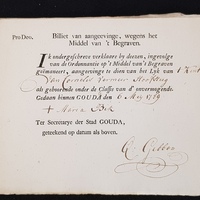 Pro Deo.
Billiet van aangeevinge, wegens het
Middel van 't Begraven.
Ik ondergeschreven verklaare by deezen, ingevolge
van de Ordonnantie op 't Middel van 't Begraven
geëmaneert, aangevinge te doen van het Lyk van 1 Kint
Van Cornelis
als gehoorende onder de Classis van d' onvermogende.
Gedaan binnen GOUDA den 6 Mey 1789
Ter Secretarye der Stad GOUDA,
geteekend op datum als boven.